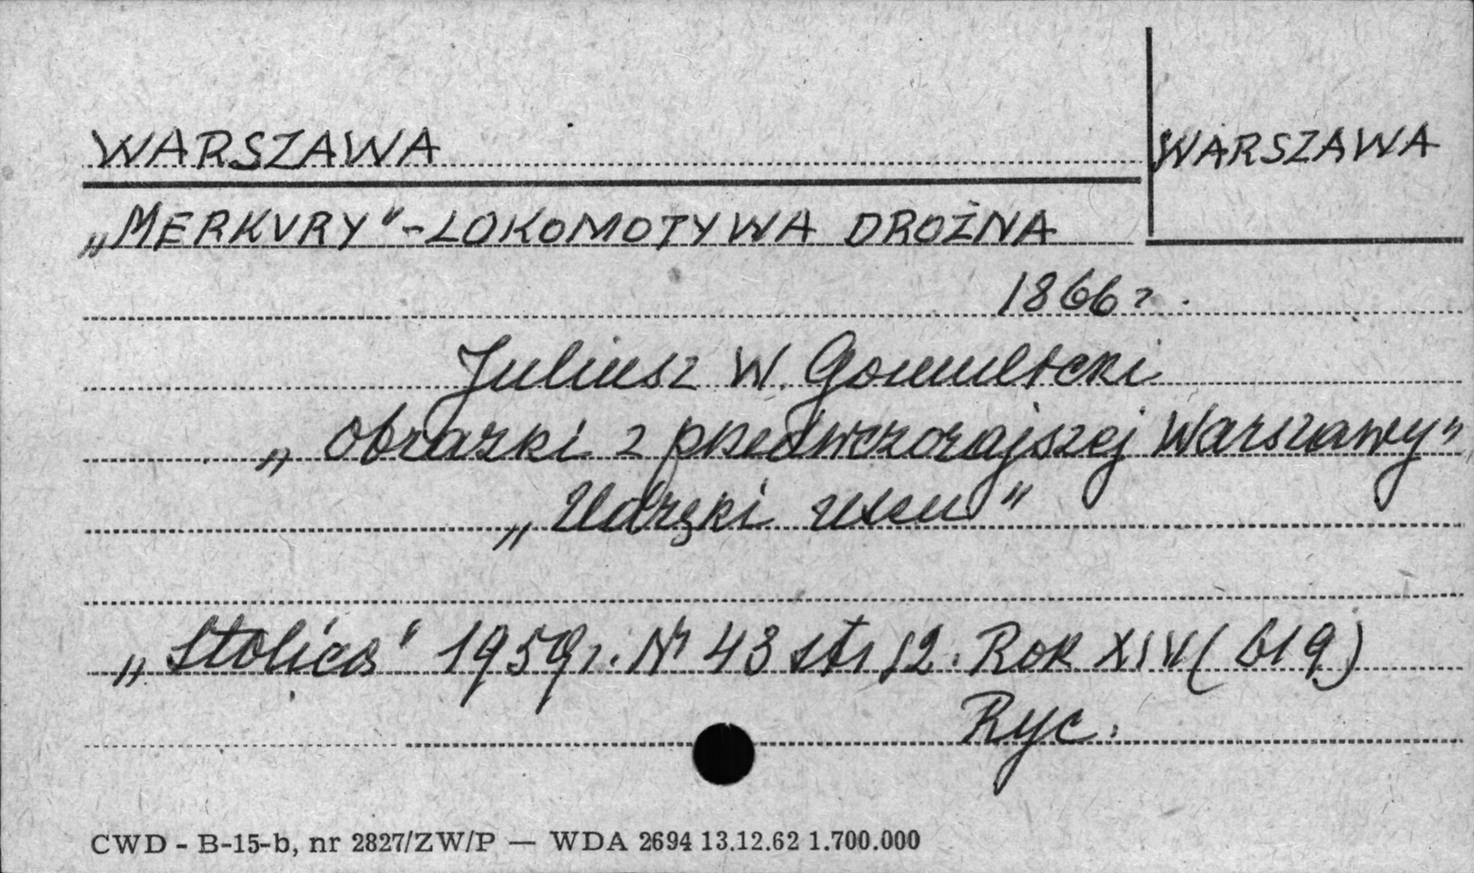 WARSZAWA
WARSZAWA
„MERKURY" - LOKOMOTYWA DROŻNA
1866 r.
Juliusz W. Gomulicki
„Obrazki z przedwczorajszej Warszawy"
„
"
„Stolica" 1959 r. Nr 43 str 12. Rok XIV (619)
Ryc.
CWD - B-15-b, nr 2827/ZW/P — WDA 2694 13.12.62 1.700.000